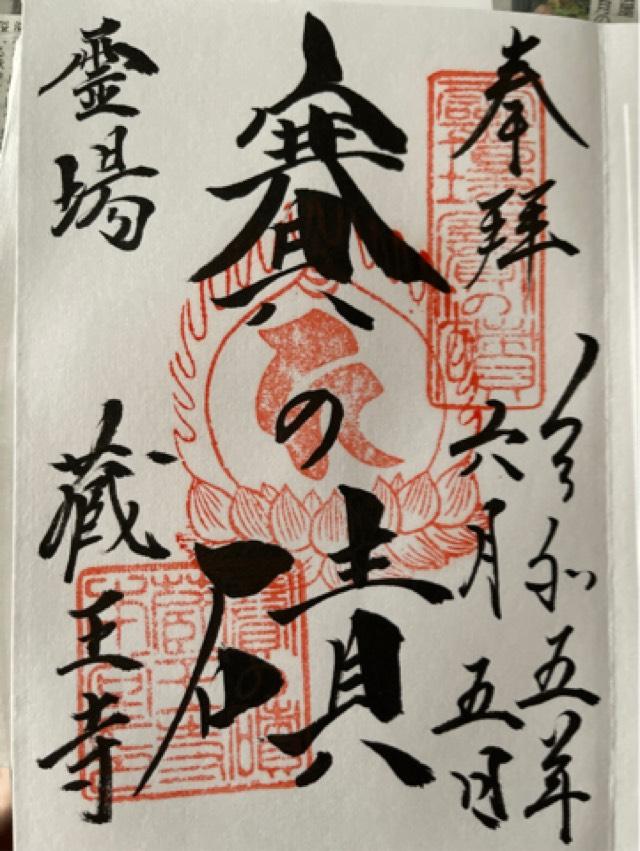 奉拝
令和五年
六月五日
賽の磧
霊場
蔵王寺